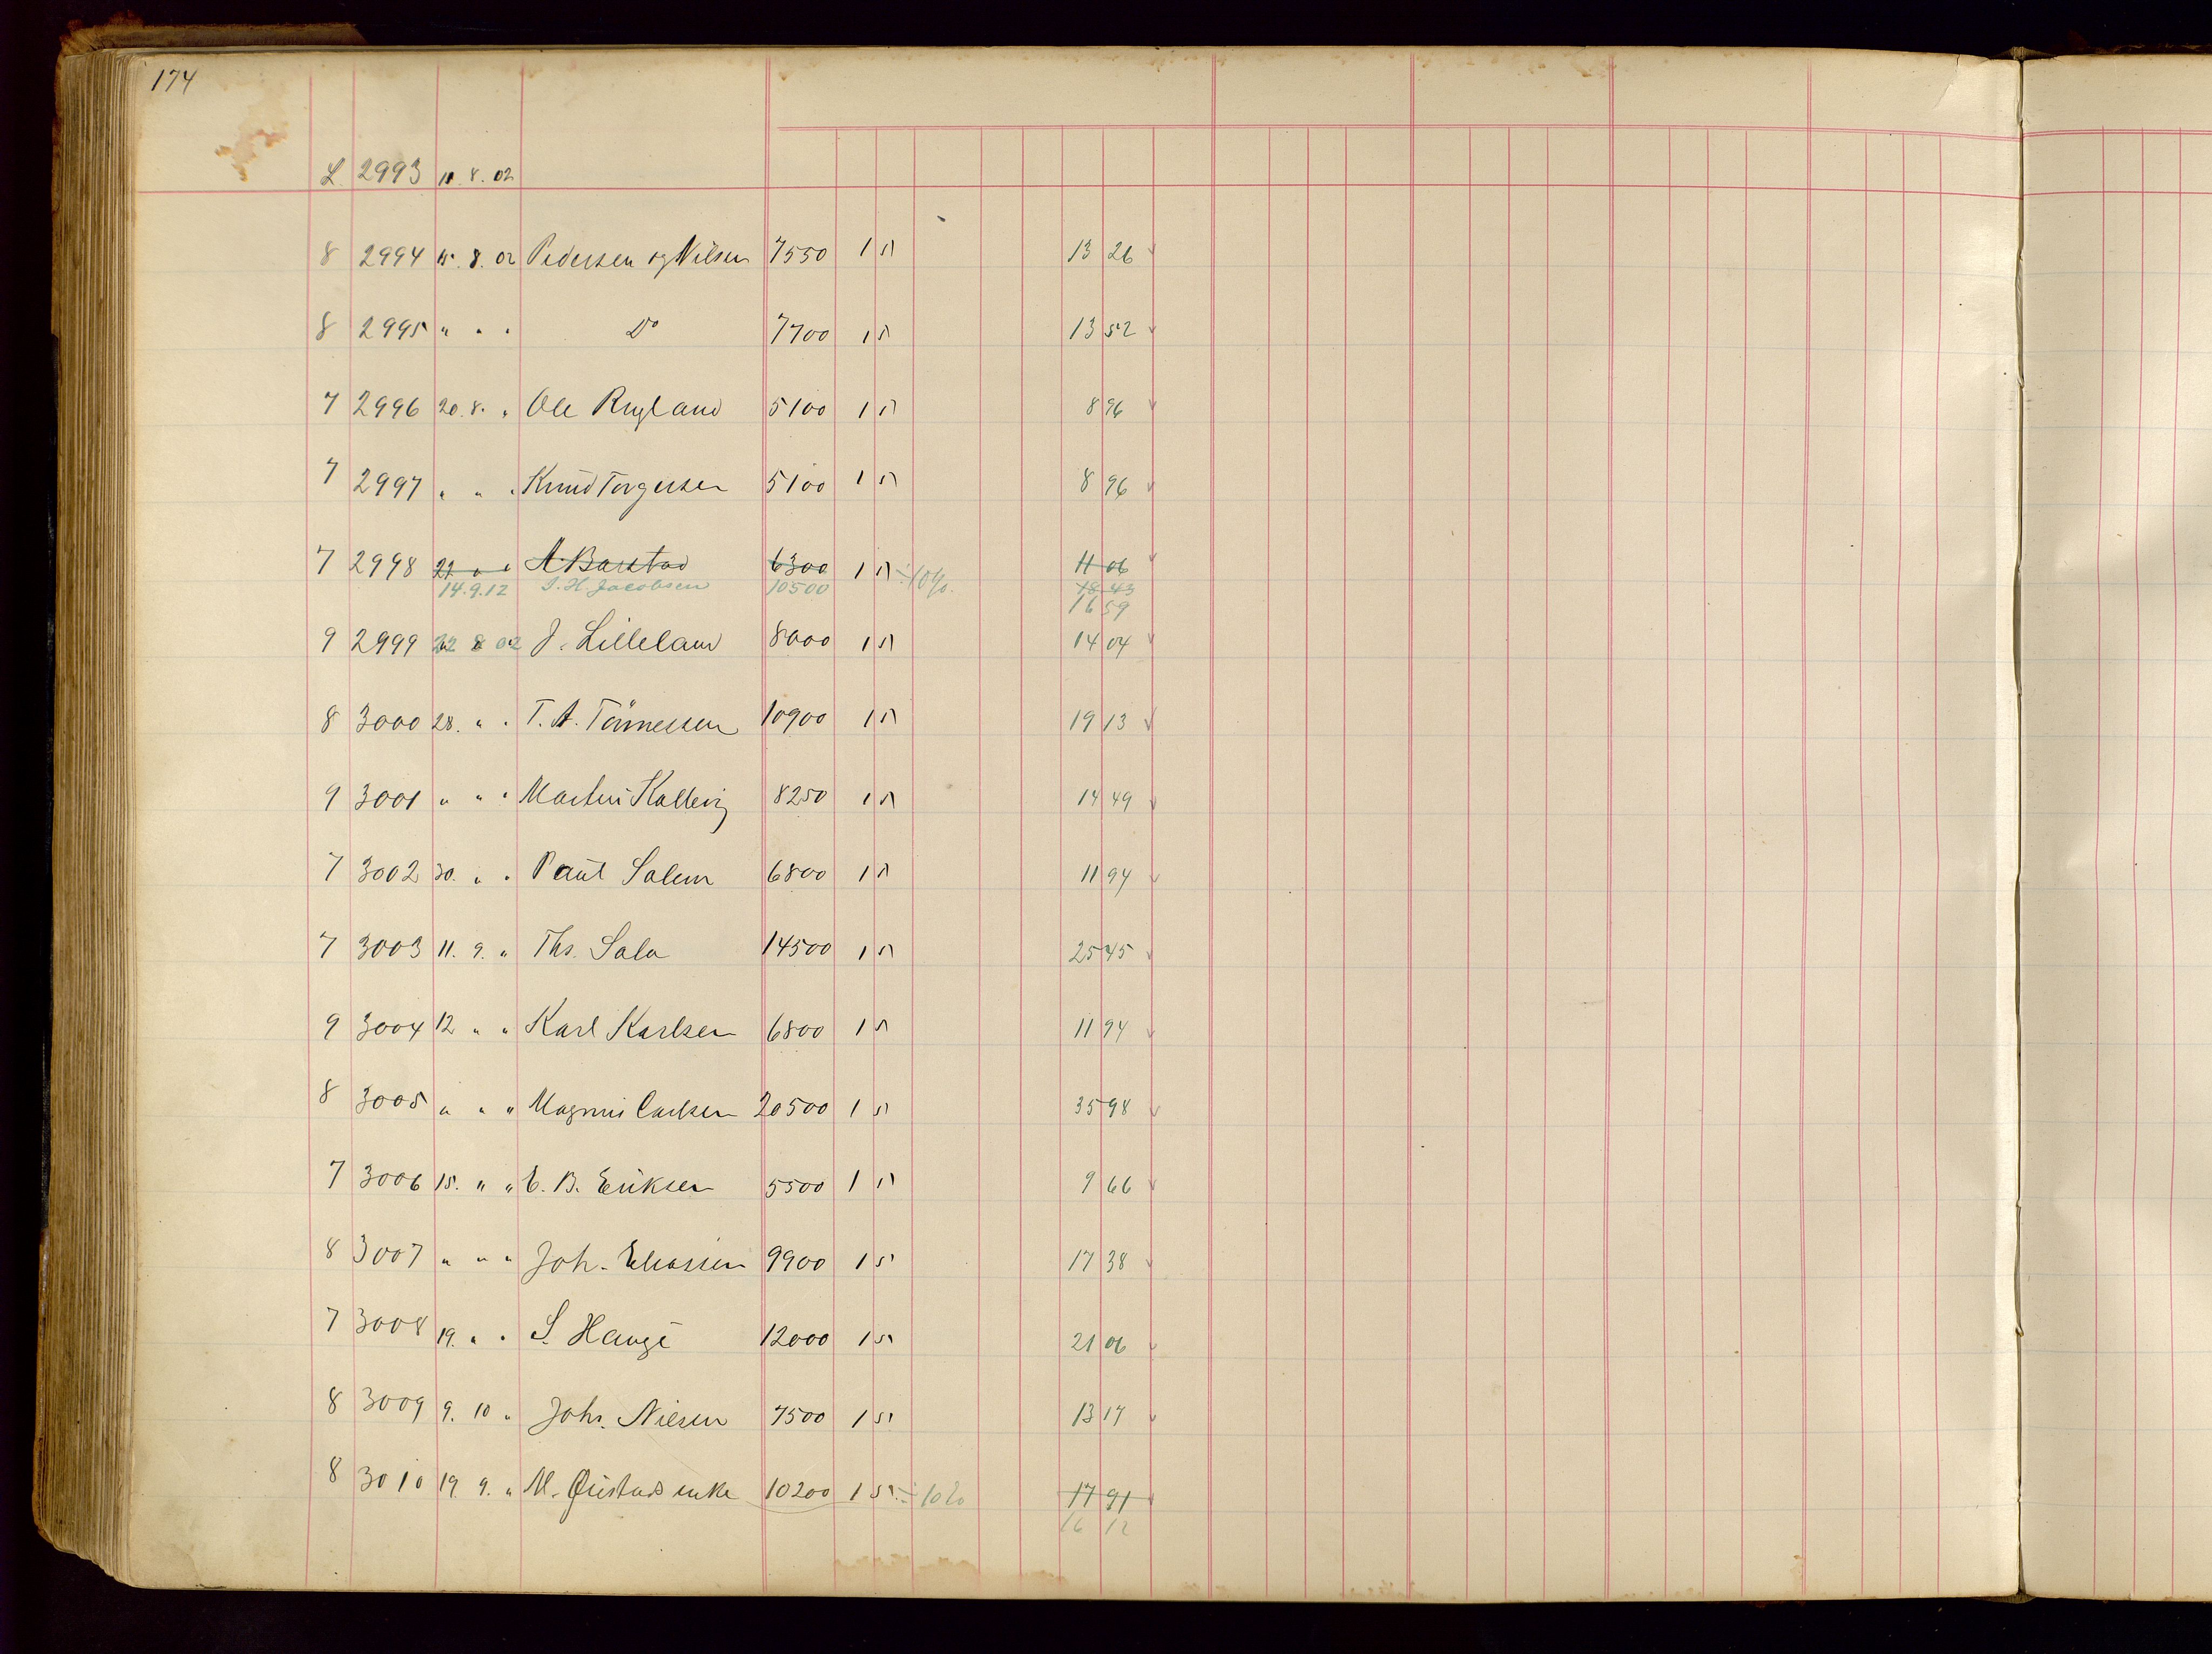 174
L 2993 11. 8. 02
8 2994 15. 8. 02 Pedersen og Nilsen 7550 1 5) 13 26
8 2995 " " " Do 7700 1 5) 13 52
7 2996 20. 8. " Ole Rugland 5100 1 5) 8 96
7 2997 " " " Knud Torgersen 5100 1 5) 8 96
7 2998 21. " " A. Barstad 6300 1 5) ÷ 10% 11 06
14.9.12 J. H. Jacobsen 10500 18 43
16 59
9 2999 22 8 02 J. Lilleland 8000 1 5) 14 04
8 3000 28. " " T. A. Tönnessen 10900 1 5) 19 13
9 3001 " " " Martin Kallevig 8250 1 5) 14 49
7 3002 30. " " Paul Salem 6800 1 5) 11 94
7 3003 11. 9. " Ths. Sala 14500 1 5) 25 45
9 3004 12 " " Karl Karlsen 6800 1 5) 11 94
8 3005 " " " Magnus Carlsen 20500 1 5) 35 98
7 3006 15. " " E. B. Eriksen 5500 1 5) 9 66
8 3007 " " " Joh. Eliassen 9900 1 5) 17 38
7 3008 19. " " S. Hauge 12000 1 5) 21 06
8 3009 9. 10 " Johs. Nilsen 7500 1 5) 13 17
8 3010 19. 9. " M. Qvistads enke 10200 1 5) ÷ 10% 17 91
16 12